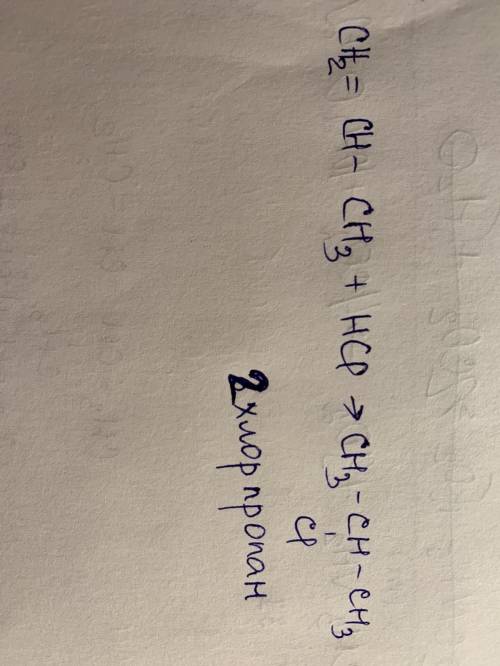 CH₂ = CH - CH₃ + HCl → CH₃ - CH - CH₃
Cl
2 хлорпропан